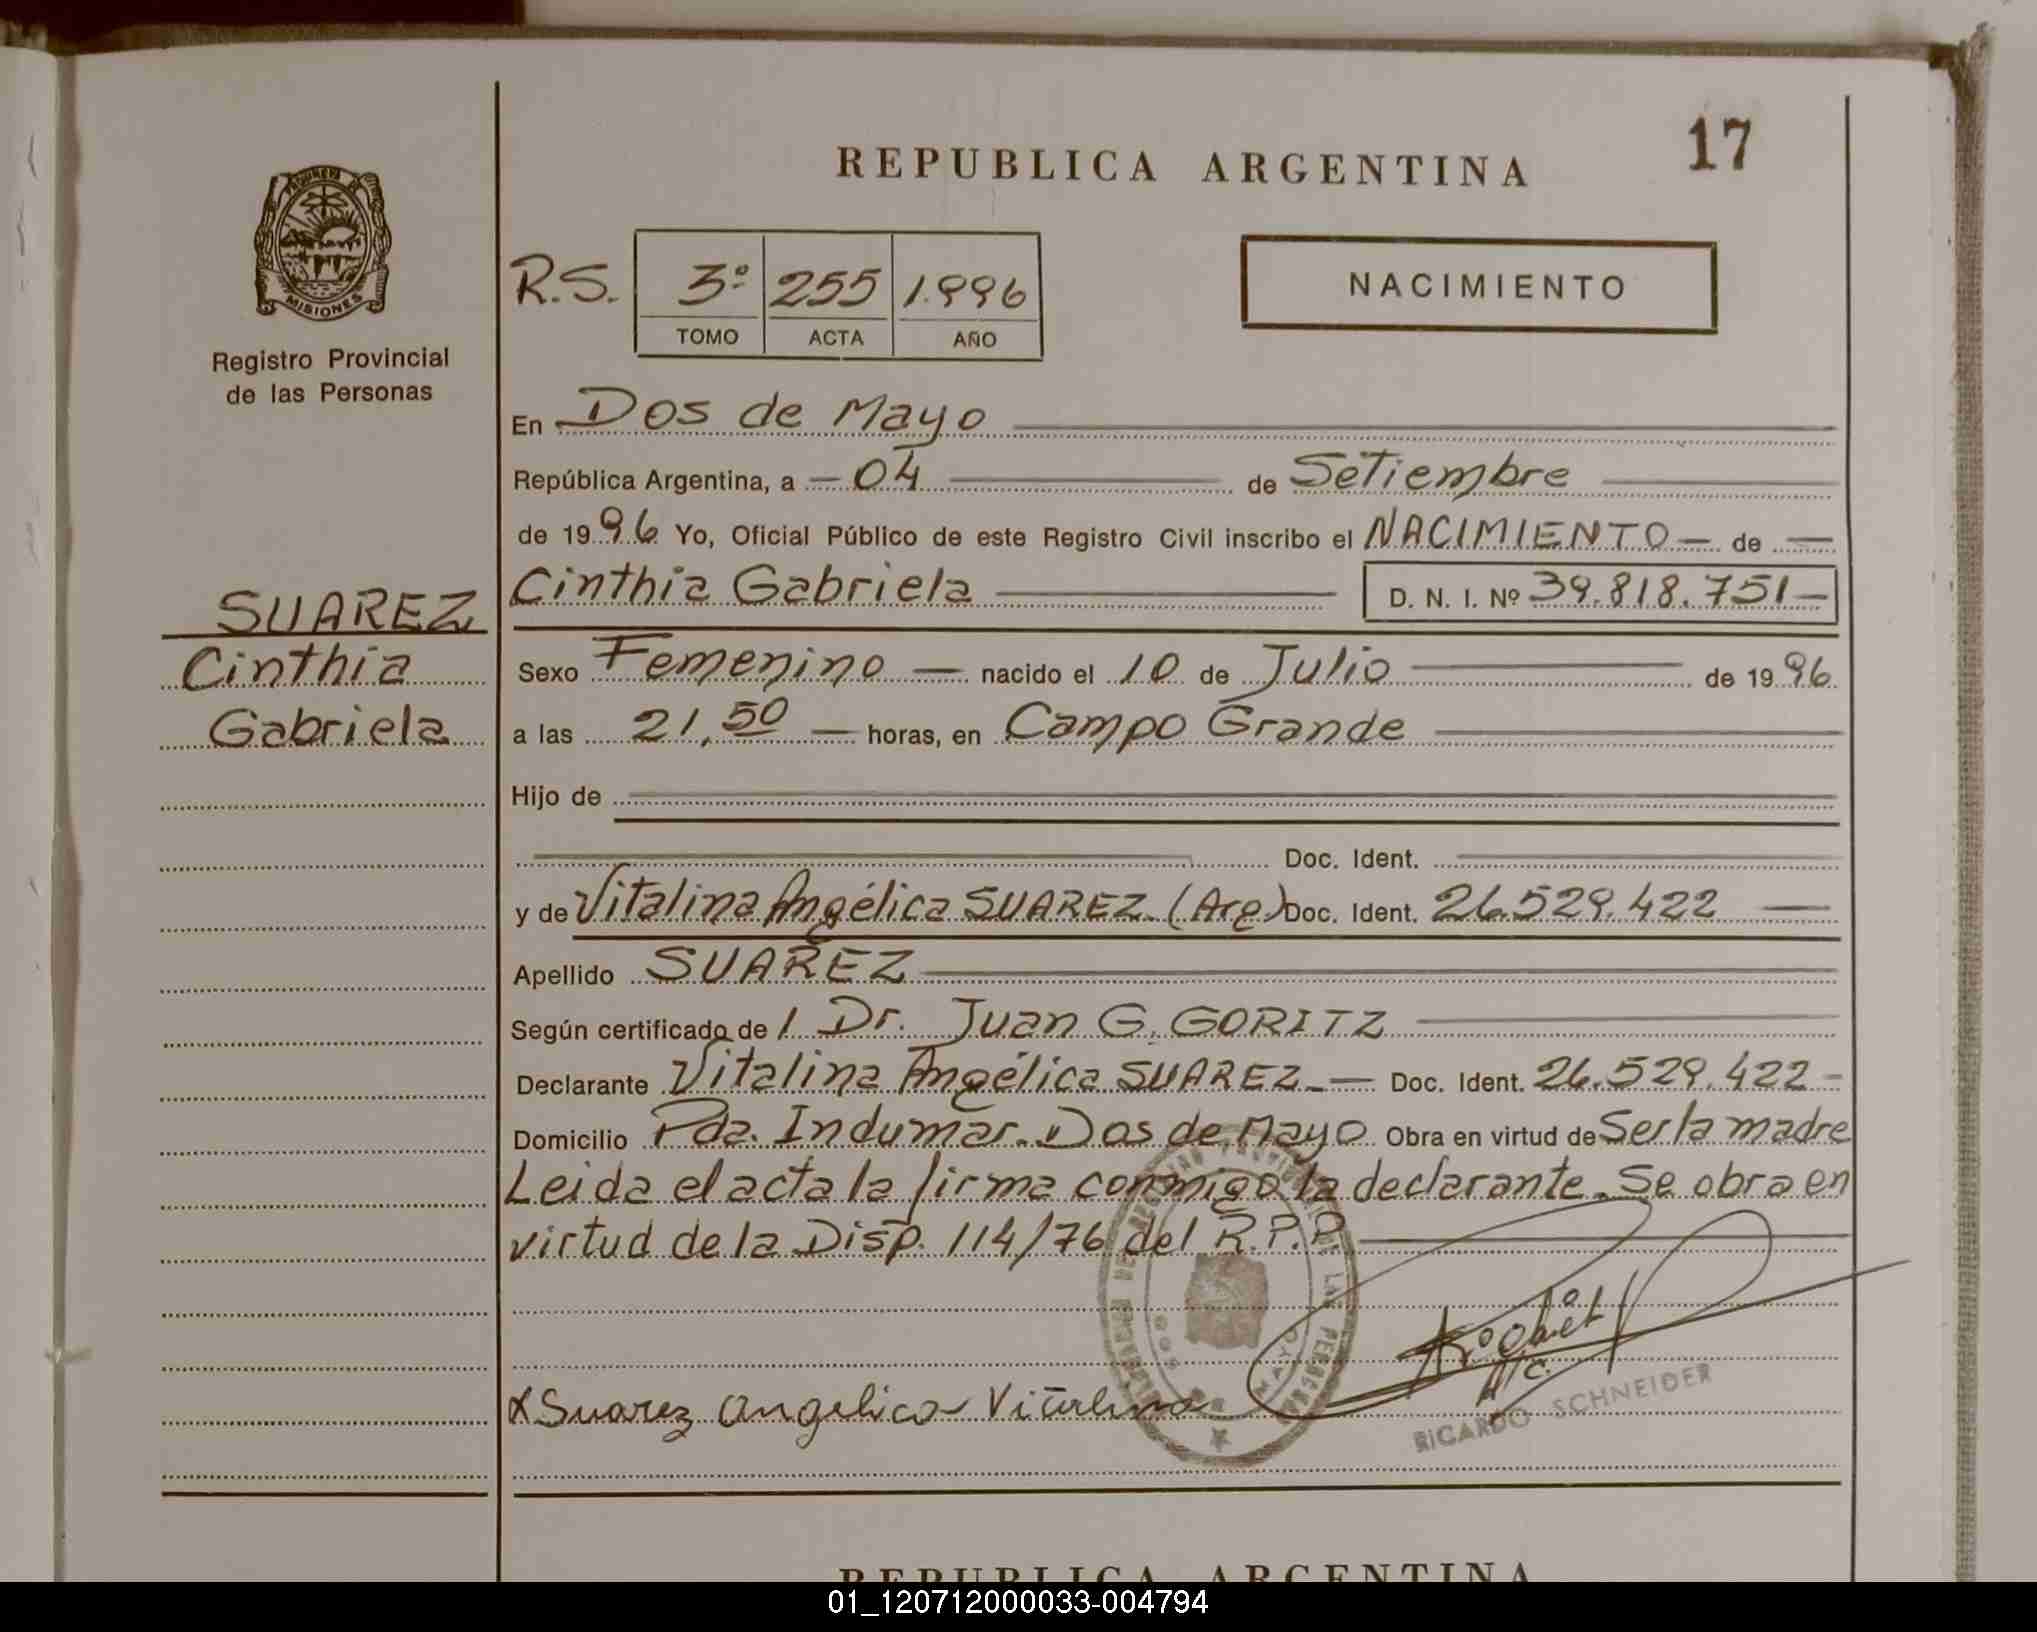 17
REPUBLICA ARGENTINA
MISIONES
Registro Provincial
de las Personas
R.S. 3º 255 1.996
TOMO ACTA AÑO
NACIMIENTO
En Dos de Mayo
República Argentina, a 04 de Setiembre
de 1996 Yo, Oficial Público de este Registro Civil inscribo el NACIMIENTO de
SUAREZ
Cinthia
Gabriela
Cinthia Gabriela D. N. I. Nº 39.818.751
Sexo Femenino nacido el 10 de Julio de 1996
a las 21,50 horas, en Campo Grande
Hijo de
Doc. Ident.
y de Vitalina Angélica SUAREZ (Arg) Doc. Ident. 26.529.422
Apellido SUAREZ
Según certificado de / Dr. Juan G. GORITZ
Declarante Vitalina Angélica SUAREZ Doc. Ident. 26.529.422
Domicilio Pda. Indumar. Dos de Mayo Obra en virtud de Ser la madre
Leida el acta la firma conmigo la declarante. Se obra en
virtud de la Disp. 114/76 del R.P.P.
DOS DE MAYO
Suarez Angelica Vitalina
RICARDO SCHNEIDER
REPUBLICA ARGENTINA
01_120712000033-004794